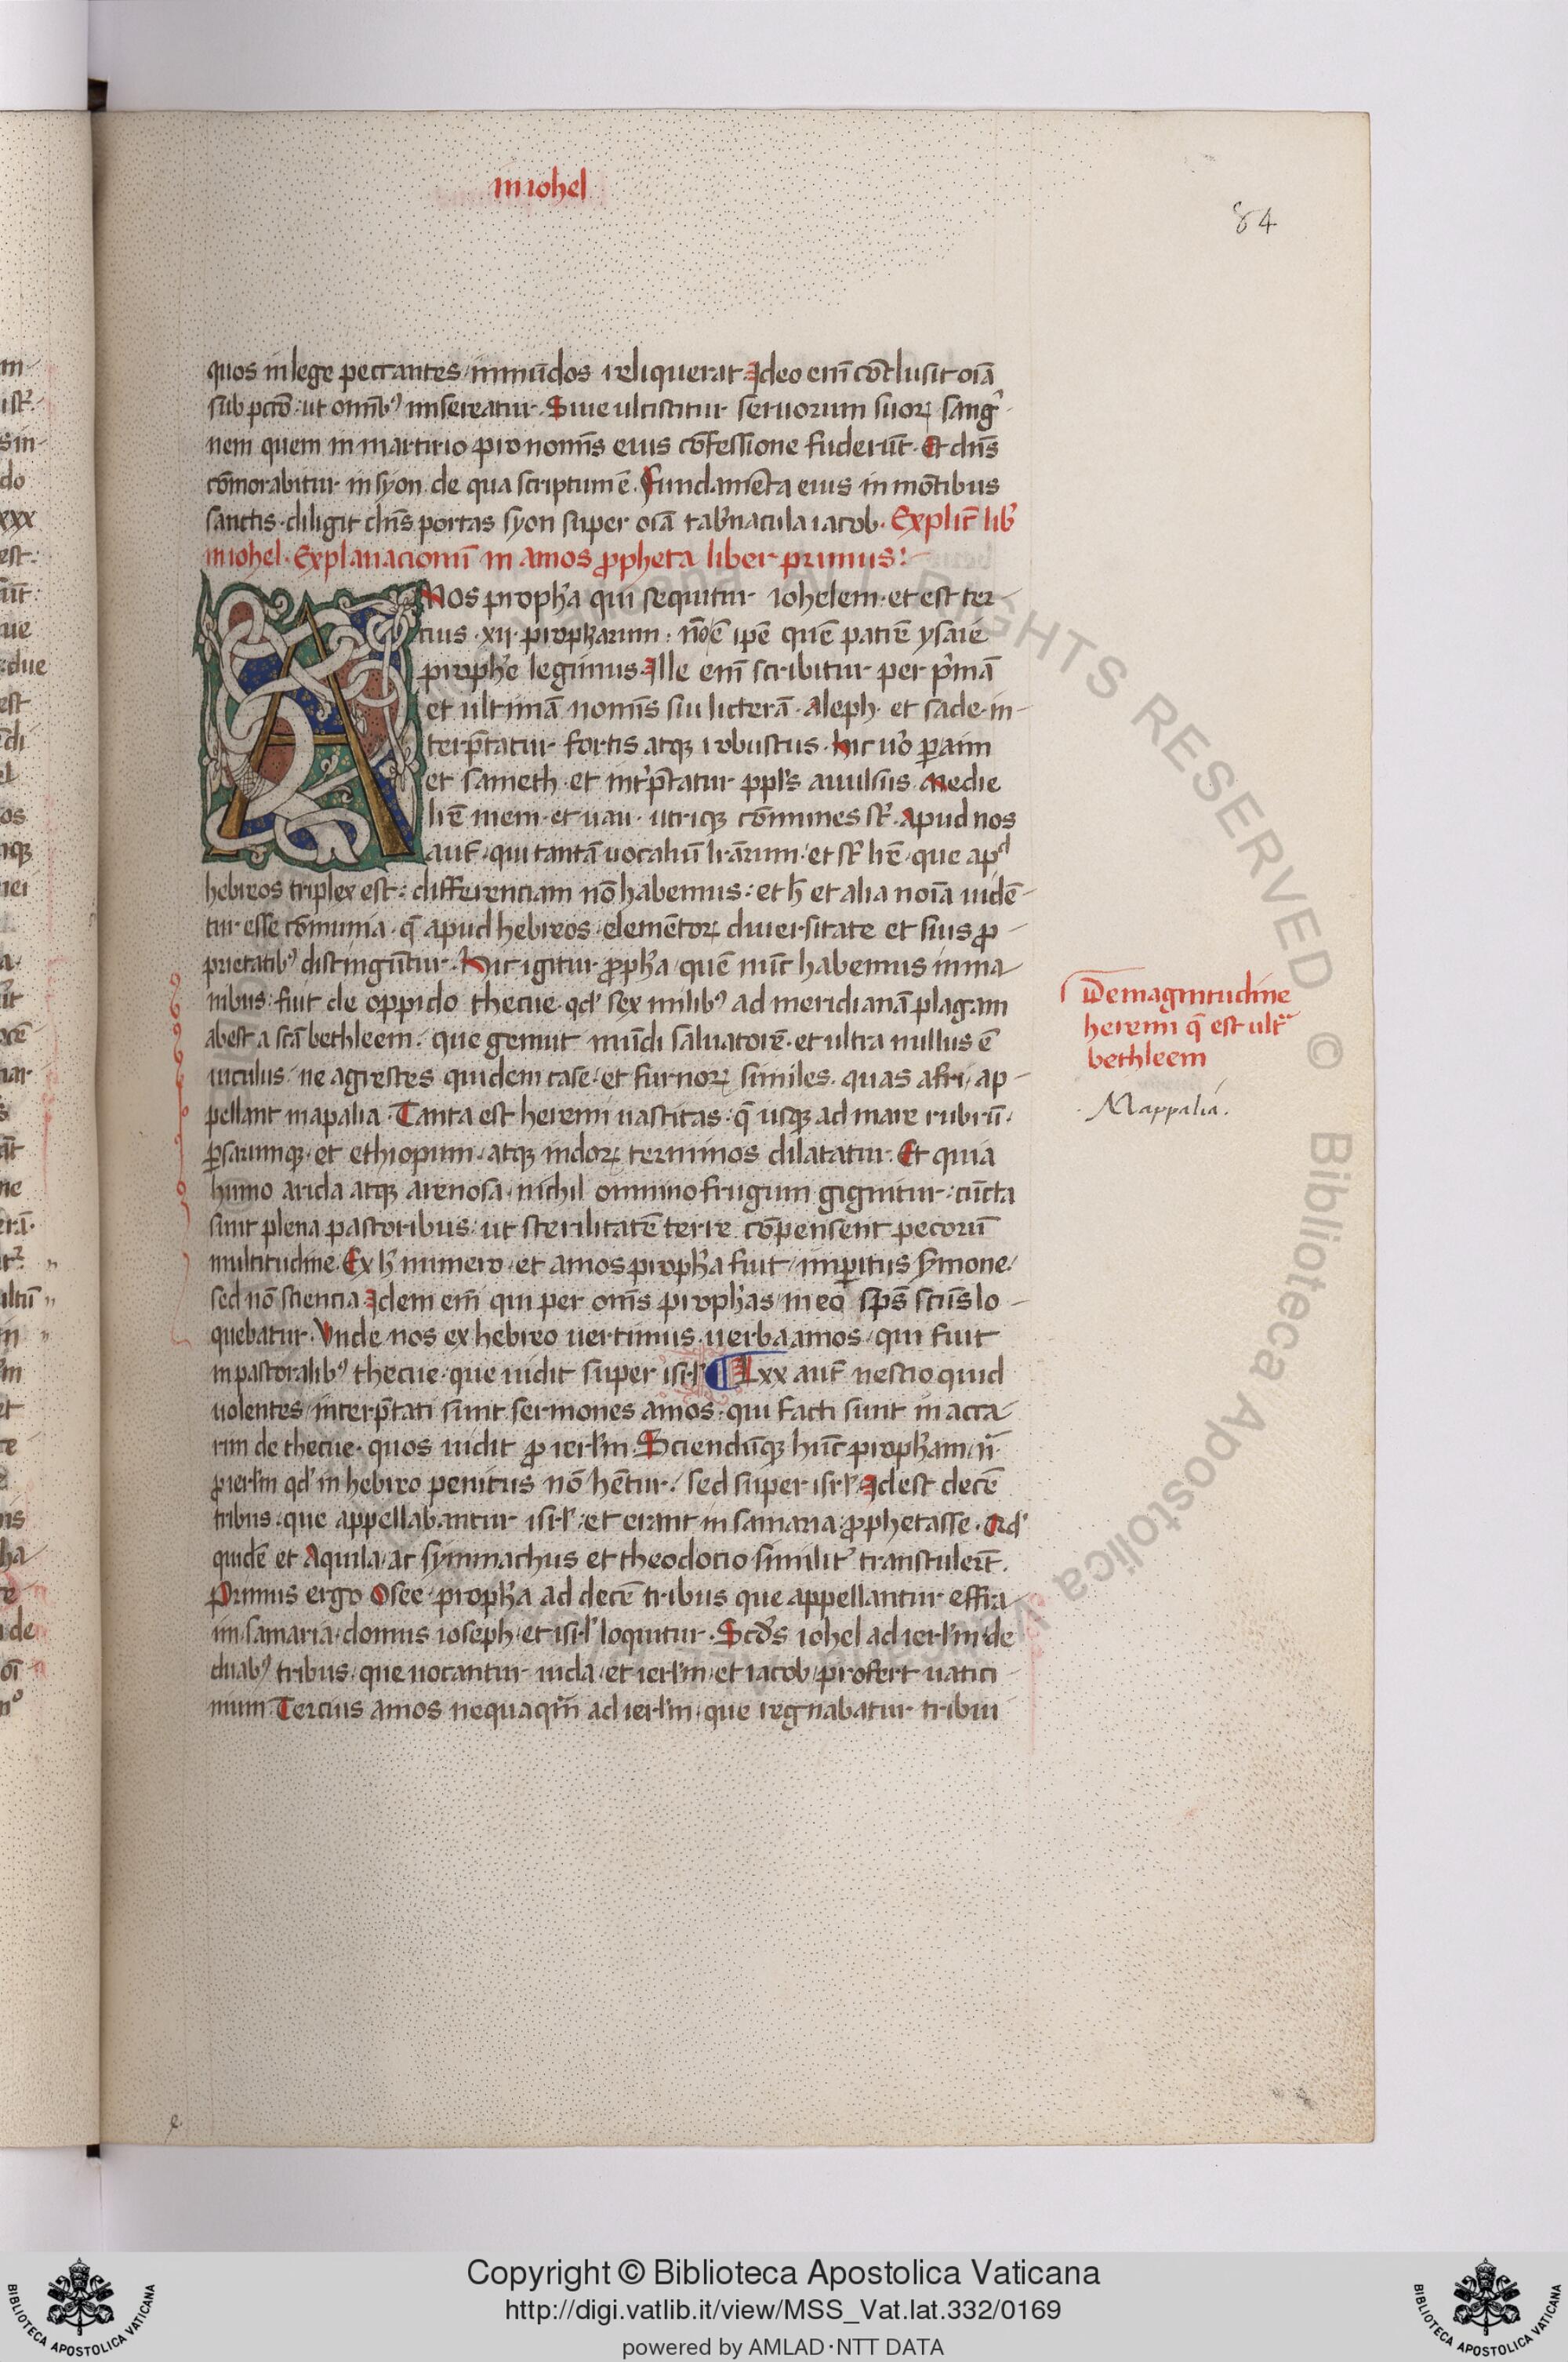 in iohel
84
quos in lege peccantes / inmūdos reliquerat. Ideo eni̅ co̅clusit oīa
sub pctō· ut omīb⁹ misereatur. Siue ulciscitur seruorum suoꝝ sangⁱ-
nem quem in martirio pro nomīs eius cōfessione fuderūt. Et dn̄s
cōmorabitur in syon de qua scriptum ē. Fundamēta eius in mōtibus
sanctis· diligit dn̄s portas syon super oīa tab̓nacula iacob. Explic̄ lib̓
in iohel. Explanacionū in amos ꝓpheta liber primus:
AMos proph̄a qui sequitur iohelem· et est ter-
tius ·xii· proph̄arum: nō ē ip̄e quē patrē ysaie
proph̄e legimus. Ille eni̅ scribitur per pⁱmā
et ultimā nomīs sui litterā. Aleph· et sade· in-
terp̄tatur fortis atqꝫ robustus. Hic uº ꝑ ain
et sameth· et int̓p̄tatur ppl̓s auulsus. Medie
lr̄e mem· et uau· utriqꝫ cōmunes st̄. Apud nos
aut̄· qui tantā uocaliū lr̄arum· et st̄ lr̄e· que apᵈ
hebreos triplex est: differenciam nō habemus: et h̄ et alia noīa uidē-
tur esse cōmunia· q̄ apud hebreos elemētoꝝ diuersitate et suis ꝓ-
prietatib⁹ distingūtur. Hic igitur ꝓph̄a quē nūc habemus in ma
nibus: fuit de oppido thecue· qd̓ sex milib⁹ ad meridianā plagam
abest a scā bethleem: que genuit mūdi saluatorē· et ultra nullus ē
uiculus· ne agrestes quidem case· et furnoꝝ similes· quas afri ap-
pellant mapalia. Tanta est heremi uastitas· q̄ usqꝫ ad mare rubrū·
ꝑsarumqꝫ· et ethiopum· atqꝫ indoꝝ terminos dilatatur. Et quia
humo arida atqꝫ arenosa· nichil omnino frugum gignitur: cūcta
sunt plena pastoribus· ut sterilitatē terre cōpensent pecorū
multitudine. Ex h̄ numero· et amos proph̄a fuit· imꝑitus s̓mone·
sed nō scientia. Idem em̄ qui per om̄s proph̄as in eo sp̄s scūs lo-
quebatur. Vnde nos ex hebreo uertimus. uerba amos· qui fuit
in pastoralib⁹ thecue· que uidit super isrl̓ ¶ Lxx aut̄ nescio quid
uolentes interp̄tati sunt. sermones amos· qui facti sunt in acca
rim de thecue· quos uidit ꝓ ierl̓m. Sciendūqꝫ hūc proph̄am n̄
ꝓ ierl̓m qd̓ in hebreo penitus nō hētur· sed super isrl̓· Id est decē
tribus· que appellabantur isrl̓· et erant in samaria ꝓphetasse. Qd̓
quidē et Aquila· ac symmachus et theodocio similit̓ transtuler̄t.
Primus ergo Osee proph̄a ad decē tribus que appellantur effra
im· samaria· domus ioseph· et isrl̓ loquitur. Scd̓s iohel ad ierl̓m de
duab⁹ tribus· que uocantur iuda· et ierl̓m· et iacob· profert uatici-
nium. Tercius amos nequaqm̄ ad ierl̓m· que regnabatur tribui
De magnitudine
heremi q̄ est ultª
bethleem
Mappalia.
e
© Biblioteca Apostolica Vaticana
Copyright © Biblioteca Apostolica Vaticana
http://digi.vatlib.it/view/MSS_Vat.lat.332/0169
powered by AMLAD·NTT DATA
BIBLIOTECA APOSTOLICA VATICANA
BIBLIOTECA APOSTOLICA VATICANA